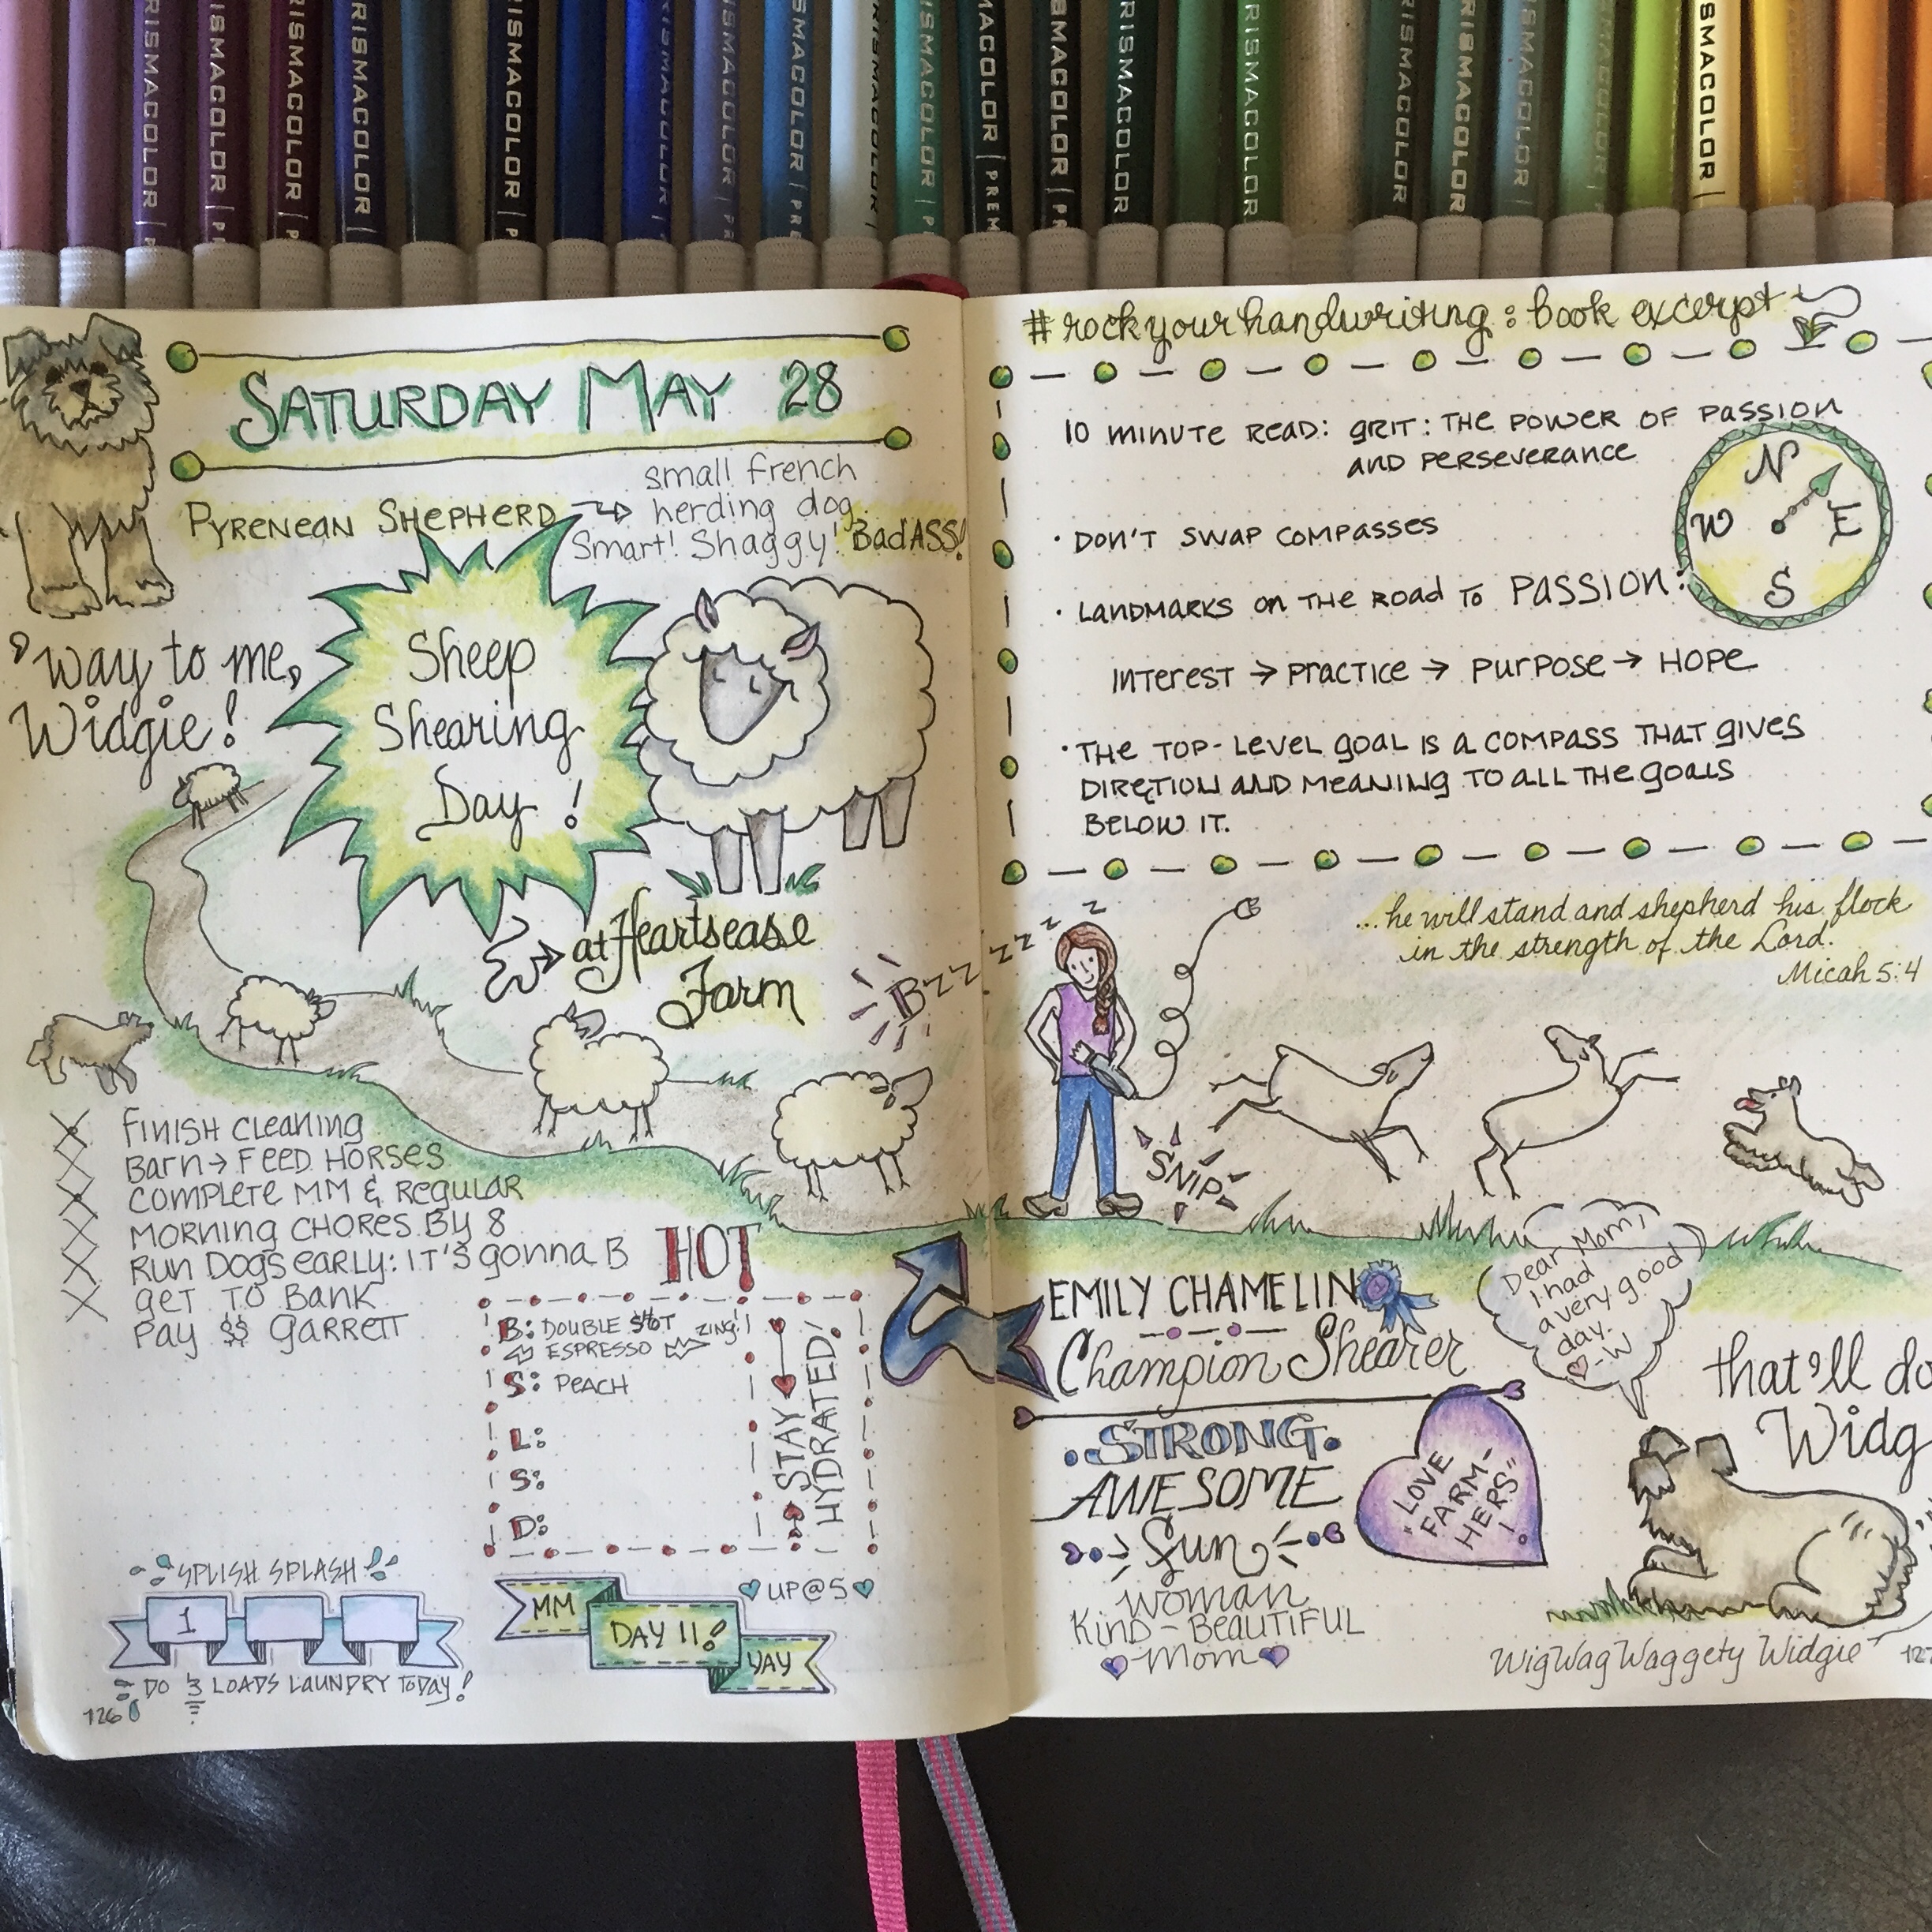 RISMACOLOR | P
RISMACOLOR
RISMACOLOR | P
RISMACOLOR |
RISMACOLOR |
RISMACOLOR | P
RISMACOLOR | PR
RISMACOLOR | PRE
PRISMACOLOR
RISMACOLOR | PR
MACOLOR | PREM
RISMACOLOR | P
RISMACOLOR
RISMACOLOR
RISMACOLOR
RISMACOLOR
RISMACOLOR
SMACOLOR | P
RISMACOLOR |
SATURDAY MAY 28
PYRENEAN SHEPHERD
small French
herding dog.
Smart! Shaggy! BadASS!
'way to me,
Widgie!
Sheep
Shearing
Day!
at Heartsease
Farm
Bzzzzzzz
FINISH CLEANING
Barn → FEED HORSES
COMPLETE MM & REGULAR
MORNING CHORES BY 8
RUN DOGS EARLY: IT'S gonna B HOT
GET TO BANK
PAY $$ GARRETT
B: DOUBLE SHOT
ESPRESSO ZING!
S: PEACH
L:
S:
D:
STAY
HYDRATED!
SPLISH SPLASH
1
DO 3 LOADS LAUNDRY TODAY!
MM
DAY 11!
YAY
UP@5
126
#rockyourhandwriting: book excerpt
10 MINUTE READ: GRIT: THE POWER OF PASSION
AND PERSEVERANCE
N
W E
S
• DON'T SWAP COMPASSES
• LANDMARKS ON THE ROAD TO PASSION:
INTEREST → PRACTICE → PURPOSE → HOPE
• THE TOP-LEVEL GOAL IS A COMPASS THAT GIVES
DIRETION AND MEANING TO ALL THE GOALS
BELOW IT.
...he will stand and shepherd his flock
in the strength of the Lord.
Micah 5:4
SNIP
EMILY CHAMELIN
Champion Shearer
STRONG
AWESOME
Fun
woman
KIND - BEAUTIFUL
Mom
"LOVE
FARM-
HERS"
!
Dear Mom,
I had
a very good
day.
-W
that'll do
Widg
WigWagWaggety Widgie
127